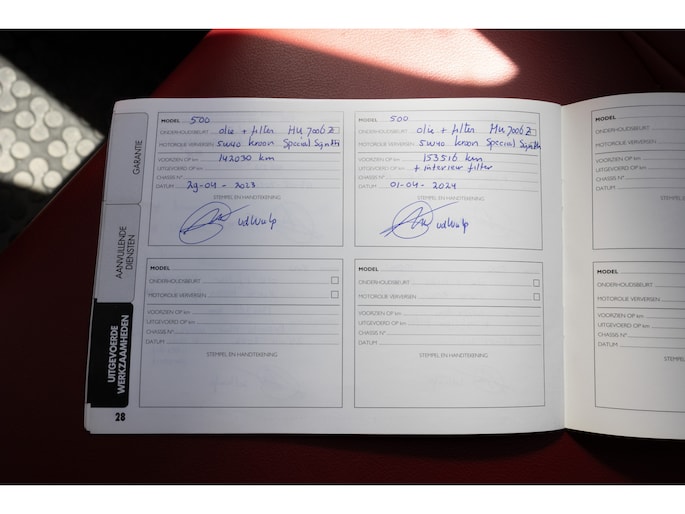 GARANTIE
AANVULLENDE
DIENSTEN
UITGEVOERDE
WERKZAAMHEDEN
28
MODEL 500
ONDERHOUDSBEURT olie + filter HU 7006 Z
MOTOROLIE VERVERSEN 5W40 kroon Special
VOORZIEN OP km 142030 km
UITGEVOERD OP km
CHASSIS N°
DATUM 29-04-2023
STEMPEL EN HANDTEKENING
vdWulp
MODEL 500
ONDERHOUDSBEURT olie + filter HU 7006 Z
MOTOROLIE VERVERSEN 5W40 kroon Special
VOORZIEN OP km 153516 km
UITGEVOERD OP km + interieur filter
CHASSIS N°
DATUM 01-04-2024
STEMPEL EN HANDTEKENING
vdWulp
MODEL
ONDERHOUDSBEURT
MOTOROLIE VERVERSEN
VOORZIEN OP km
UITGEVOERD OP km
CHASSIS N°
DATUM
STEMPEL EN HANDTEKENING
MODEL
ONDERHOUDSBEURT
MOTOROLIE VERVERSEN
VOORZIEN OP km
UITGEVOERD OP km
CHASSIS N°
DATUM
STEMPEL EN HANDTEKENING
MODEL
ONDERHOUDSBEURT
MOTOROLIE VERVERSEN
VOORZIEN OP km
UITGEVOERD OP km
CHASSIS N°
DATUM
STEMPEL
MODEL
ONDERHOUDSBEURT
MOTOROLIE VERVERSEN
VOORZIEN OP km
UITGEVOERD OP km
CHASSIS N°
DATUM
STEMPEL